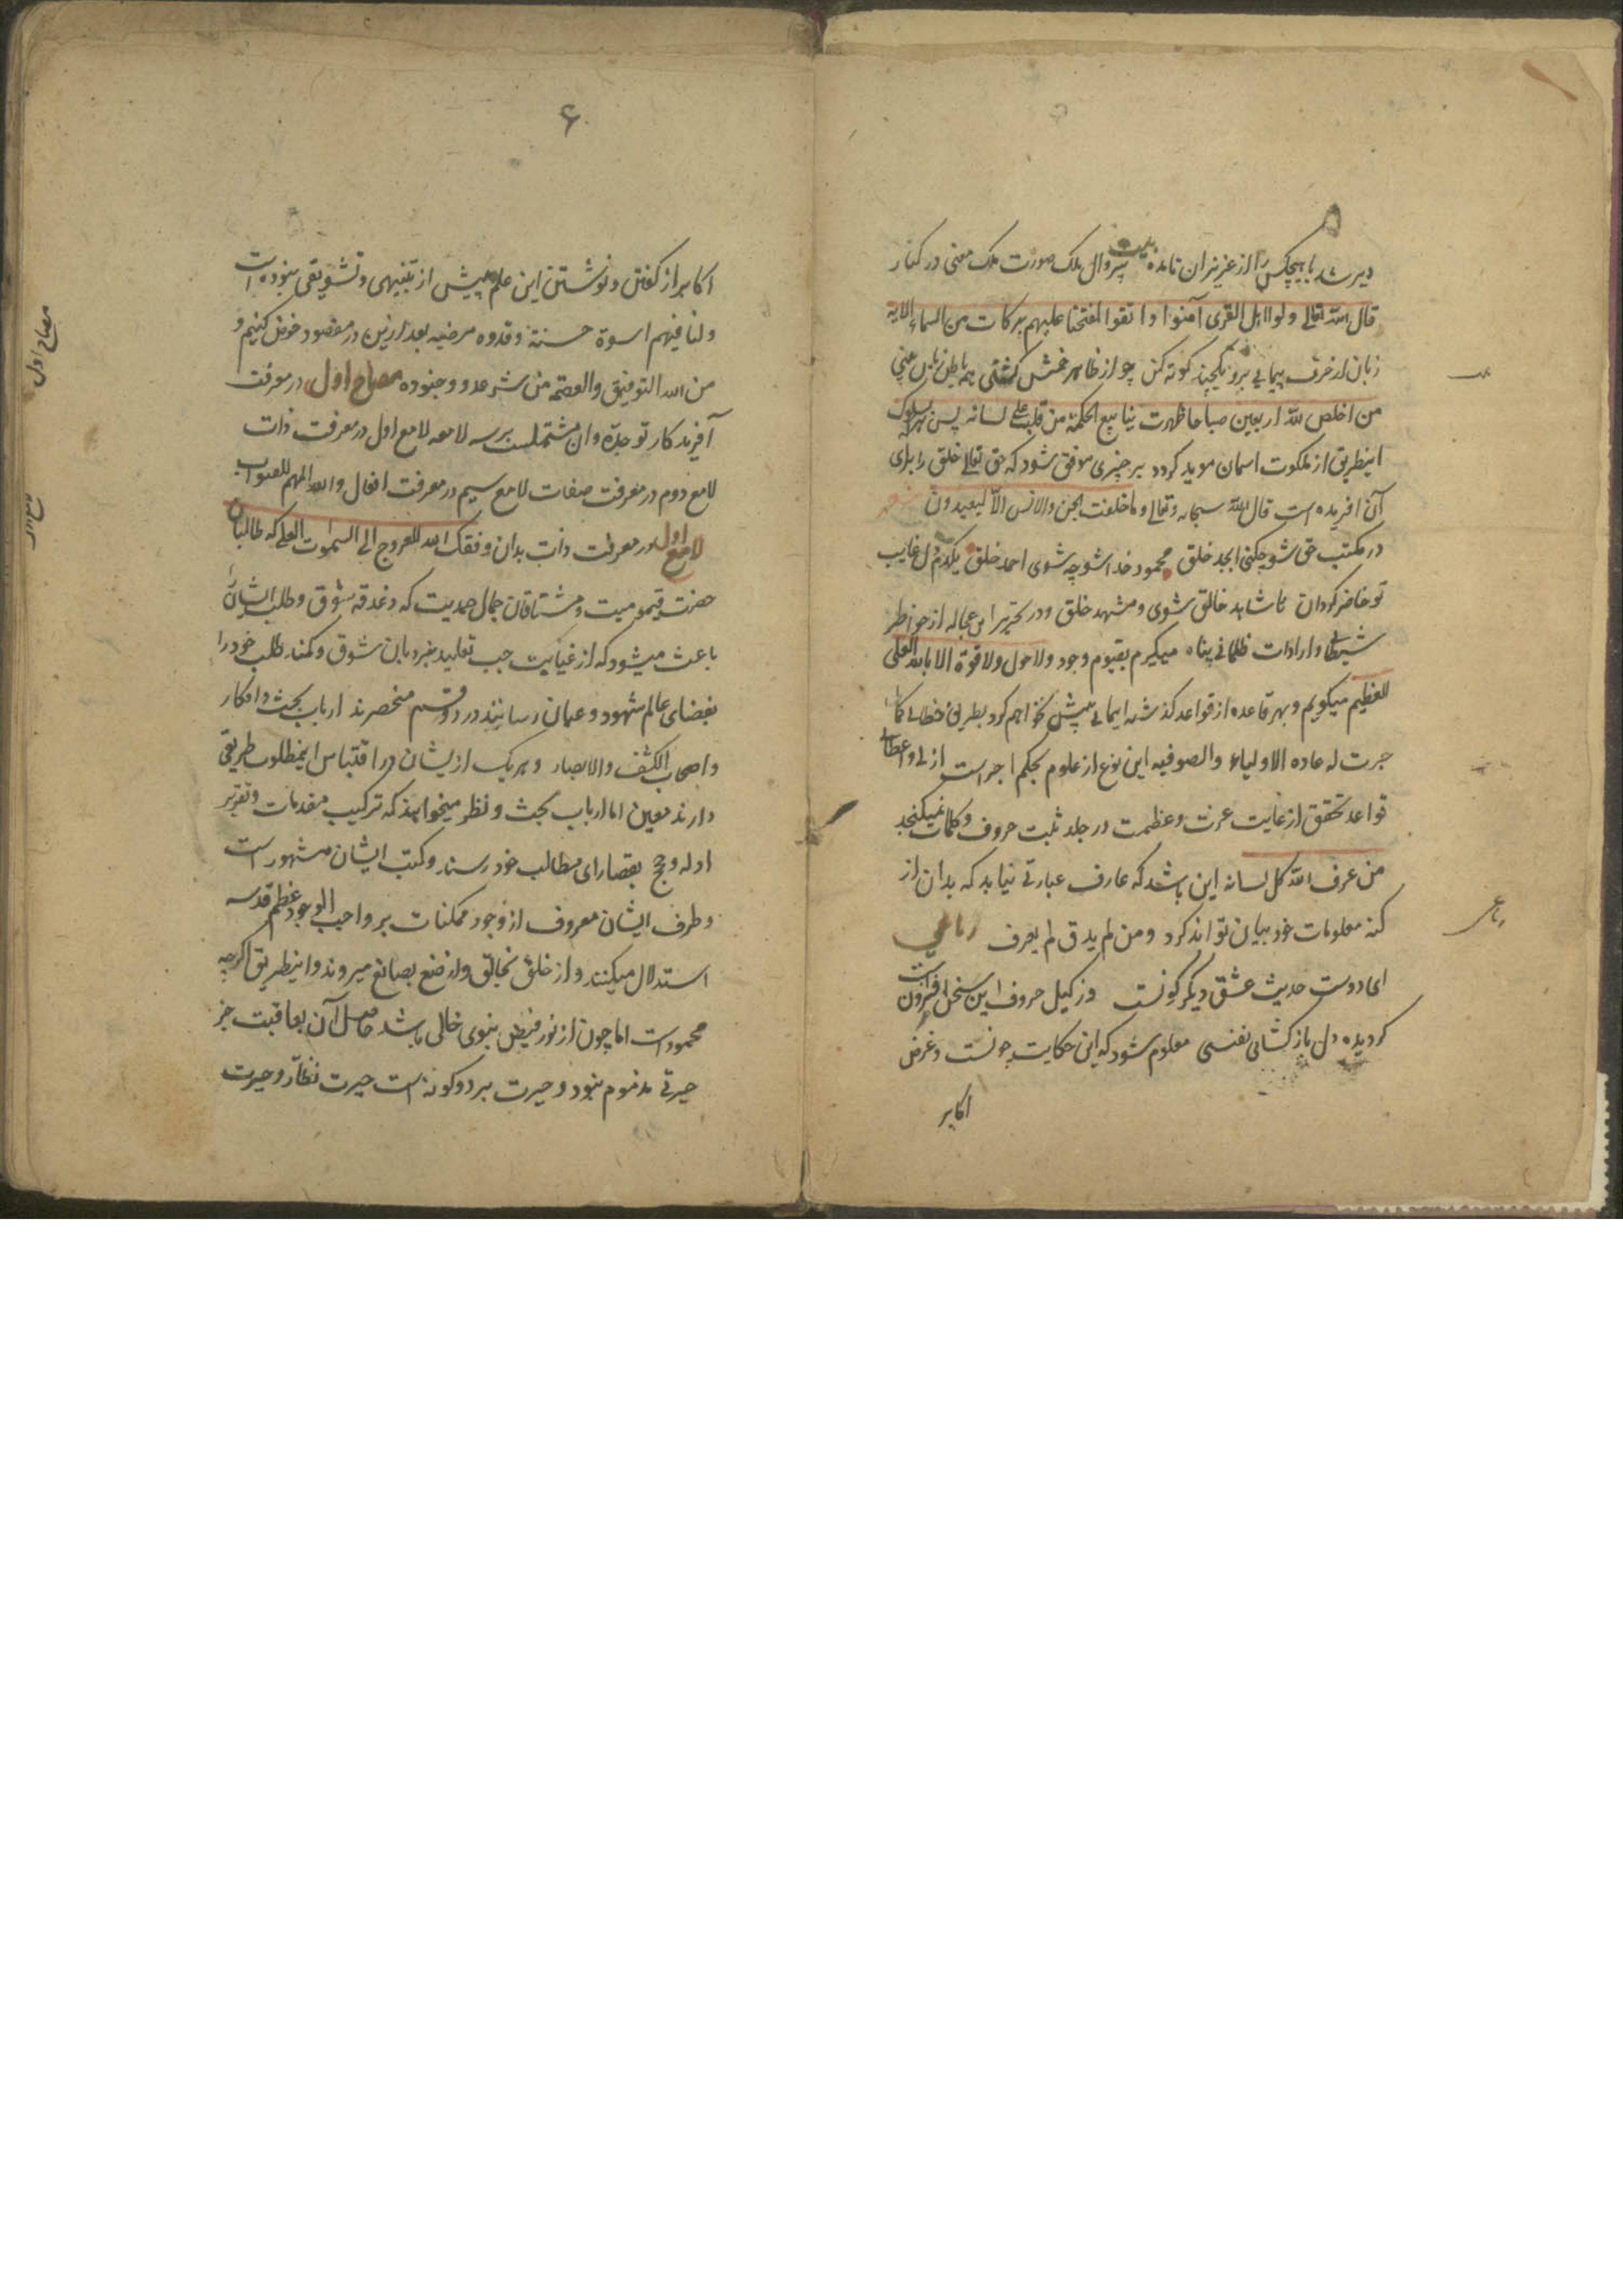 دیر شد تا هیچکس را از عزیزان نامده بیت سروال ملک صورت ملک معنی در کنار
قال الله تعالی ولو ان اهل القری آمنوا واتقوا لفتحنا علیهم برکات من السماء الایه
زبان از حرف پیمایی برو یکچند کوته کن چو از ظاهر خمش گشتی همه باطن زبان بینی
من اخلص لله اربعین صباحا ظهرت ینابیع الحکمة من قلبه علی لسانه پس بسلوک
اینطریق از ملکوت اسمان موید گردد بر چیزی موفق شود که حق تعالی خلق را برای
آن افریده است قال الله سبحانه وتعالی وما خلقت الجن والانس الا لیعبدون شعر
در مکتب حق شو چکنی ابجد خلق محمود خدا شو چه شوی احمد خلق یکدم دل غایب
تو حاضر گردان تا شاهد خالق شوی و مشهد خلق و در تحریر این عجاله از خواطر
شیطانی و ارادات ظلمانی پناه میگیرم بقیوم وجود ولا حول ولا قوة الا بالله العلی
العظیم میگویم و بهر قاعده از قواعد گذشته ایمائی پیش نخواهم کرد بطریق خطابی کما
جرت له عاده الاولیاء والصوفیه این نوع از علوم بحکم اجراست ازلی و اعطای
قواعد تحقق از غایت عزت و عظمت در جلد ثبت حروف و کلمات نمیگنجد
من عرف الله کل لسانه این باشد که عارف عبارتی نیابد که بدان از
کنه معلومات خود بیان تواند کرد ومن لم یذق لم یعرف رباعی
ای دوست حدیث عشق دیگر گونست وز کیل حروف این سخن افزونست
گر دیده دل باز گشائی نفسی معلوم شود که این حکایت چونست و غرض
اکابر
رباعی
۶
اکابر از گفتن و نوشتن این علم پیش از تنبیهی و تشویقی نبوده است
ولنا فیهم اسوة حسنة و قدوه مرضیه بعد ازین در مقصود خوض کنیم و
من الله التوفیق والعصمة من شر عدو وجنوده مصباح اول در معرفت
آفریدگار توحیده و ان مشتملست بر سه لامعه لامع اول در معرفت ذات
لامع دوم در معرفت صفات لامع سیم در معرفت افعال والله الملهم للصواب
لامع اول در معرفت ذات بدان وفقک الله للعروج الی السموات العلی که طالبان
حضرت قیومیت و مشتاقان جمال صمدیت که دغدغه شوق و طلب ایشان
باعث میشود که از غیابت جب تقلید بنردبان شوق و کمند طلب خود را
بفضای عالم شهود و عیان رسانند در دو قسم منحصرند ارباب بحث و افکار
و اصحاب الکشف والابصار و هر یک از یشان در اقتباس اینمطلوب طریقی
دارند معین اما ارباب بحث و نظر میخواهند که ترکیب مقدمات و تقریر
ادله و حج بقصارای مطالب خود رسند و کتب ایشان مشهور است
و طرف ایشان معروف از وجود ممکنات بر واجب الوجود عظم قدسه
استدلال میکنند و از خلق بخالق و از صنع بصانع میروند و اینطریق اگرچه
محمود است اما چون از نور فیض نبوی خالی باشد حاصل آن بعاقبت جز
حیرتی مذموم نبود و حیرت بر دو گونه است حیرت نظار و حیرت
مصباح اول